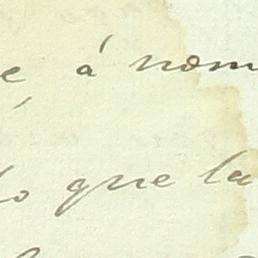 e, á nom
lo que la